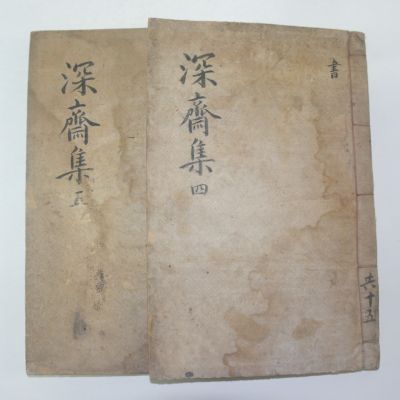 書
深齋集 四
共十五
深齋集 五